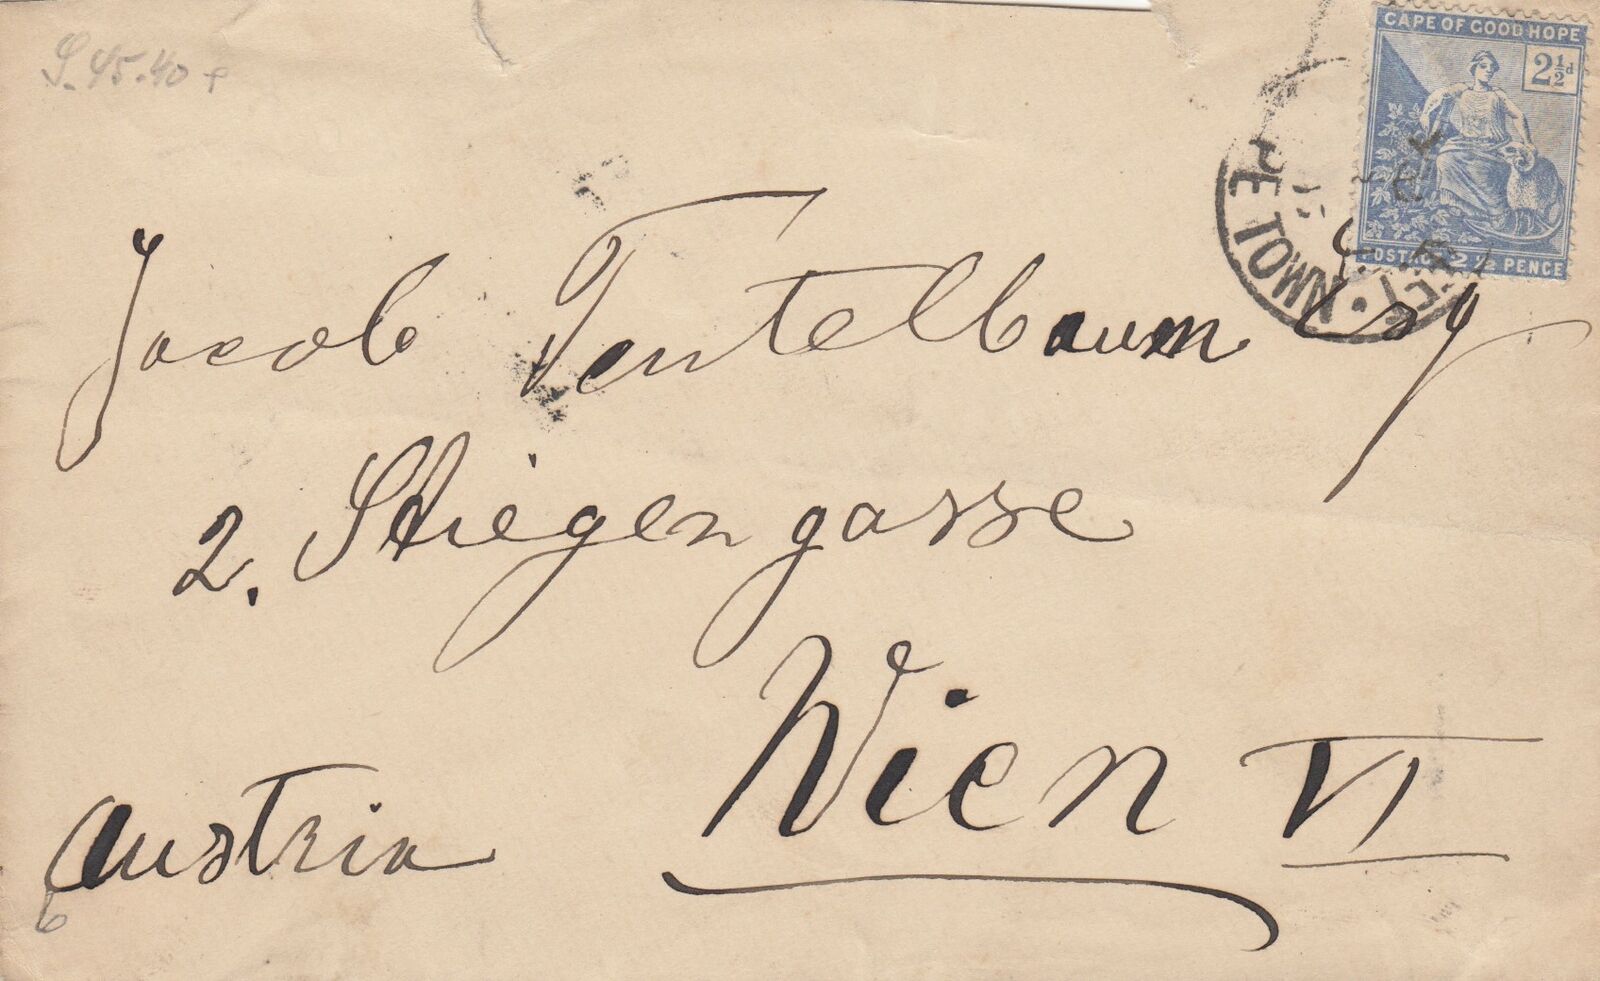 S. 45.40
CAPE OF GOOD HOPE
2½d
POSTAGE 2½ PENCE
PE TOWN
Jacob Tentelbaum Esq
2. Stiegengasse
Wien VI
Austria
6